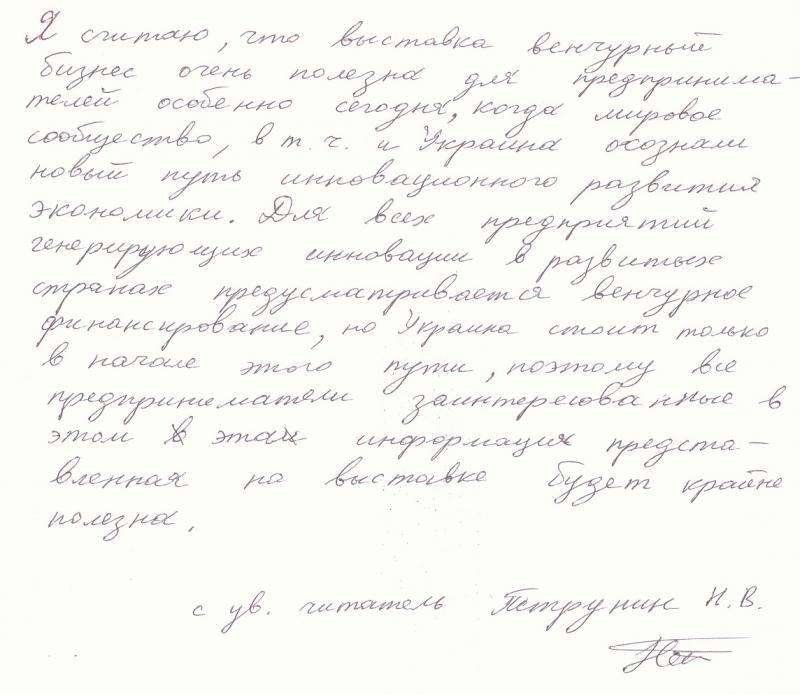 Я считаю, что выставка венчурный
бизнес очень полезна для предпринима-
телей особенно сегодня, когда мировое
сообщество, в т.ч. и Украина осознали
новый путь инновационного развития
экономики. Для всех предприятий
генерирующих инновации в развитых
странах предусматривается венчурное
финансирование, но Украина стоит только
в начале этого пути, поэтому все
предприниматели заинтересованные в
этом в этой информация предста-
вленная на выставке будет крайне
полезна.
с ув. читатель Петрунин Н.В.